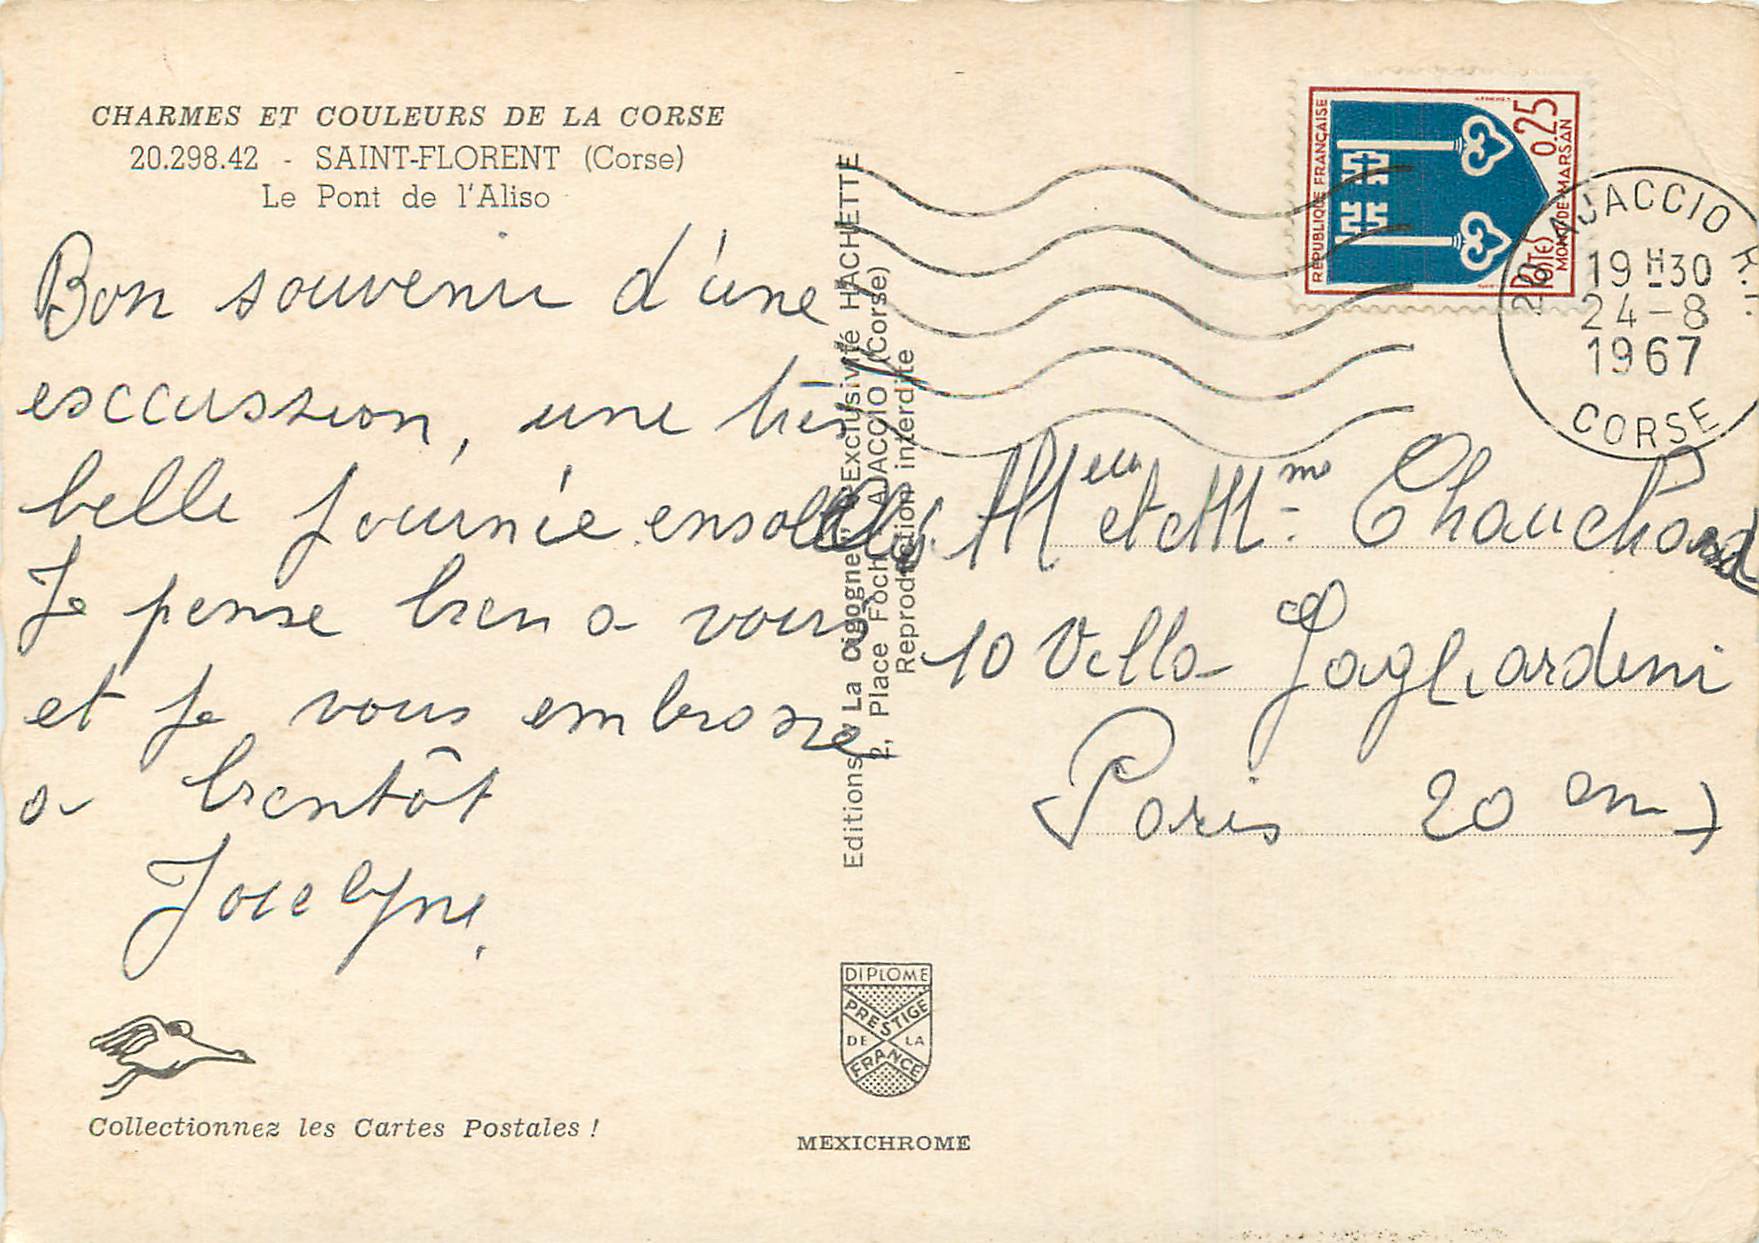 CHARMES ET COULEURS DE LA CORSE
20.298.42 - SAINT-FLORENT (Corse)
Le Pont de l'Aliso
Bon souvenir d'une
esccussion, une très
belle journée ensoleillée
Je pense bien a vous
et je vous embrasse
a bientôt
Jocelyne.
Collectionnez les Cartes Postales !
Editions "La Cigogne" Exclusivité HACHETTE
2, Place Foch AJACCIO (Corse)
Reproduction interdite
DIPLOME
PRESTIGE
DE LA
FRANCE
MEXICHROME
REPUBLIQUE FRANÇAISE
0,25
POSTES
MONT-DE-MARSAN
20 AJACCIO R.P.
19 H30
24-8
1967
CORSE
et Mme Chauchard
10 Villa Gagliardini
Paris 20 em